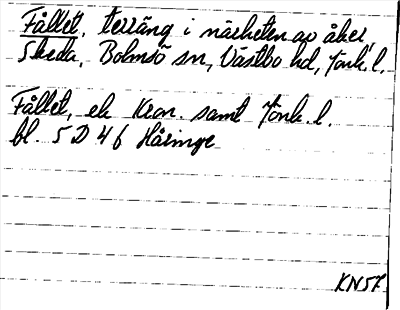 Fållet, terräng i närheten av åker,
Skeda, Bolmsö sn, Västbo hd, Jönk. l.
Fållet, ek Kron. samt Jönk. l.
bl. 5 D 4 b Håringe
KN57